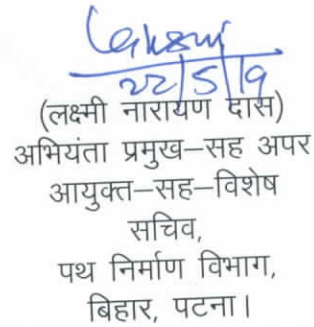 22/5/19
(लक्ष्मी नारायण दास)
अभियंता प्रमुख–सह अपर
आयुक्त–सह–विशेष
सचिव,
पथ निर्माण विभाग,
बिहार, पटना।